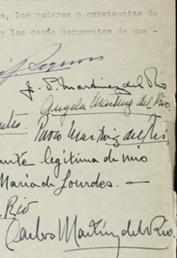 los poderes o constancias de
y los demás documentos de que -
J. P. Martinez del Rio
Angela Martinez del Rio,
Martinez del Rio
legítima de mio
María de Lourdes. —
Rio
Carlos Martinez del Rio